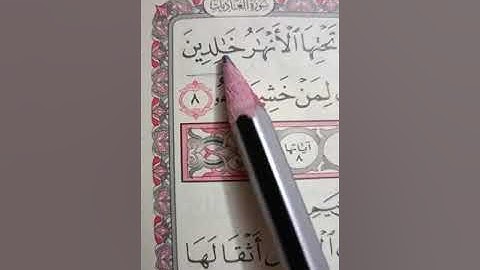 سورة العاديات
تَحْتِهَا ٱلْأَنْهَٰرُ خَٰلِدِينَ
لِمَنْ خَشِىَ
٨
آياتها
٨
أَثْقَالَهَا